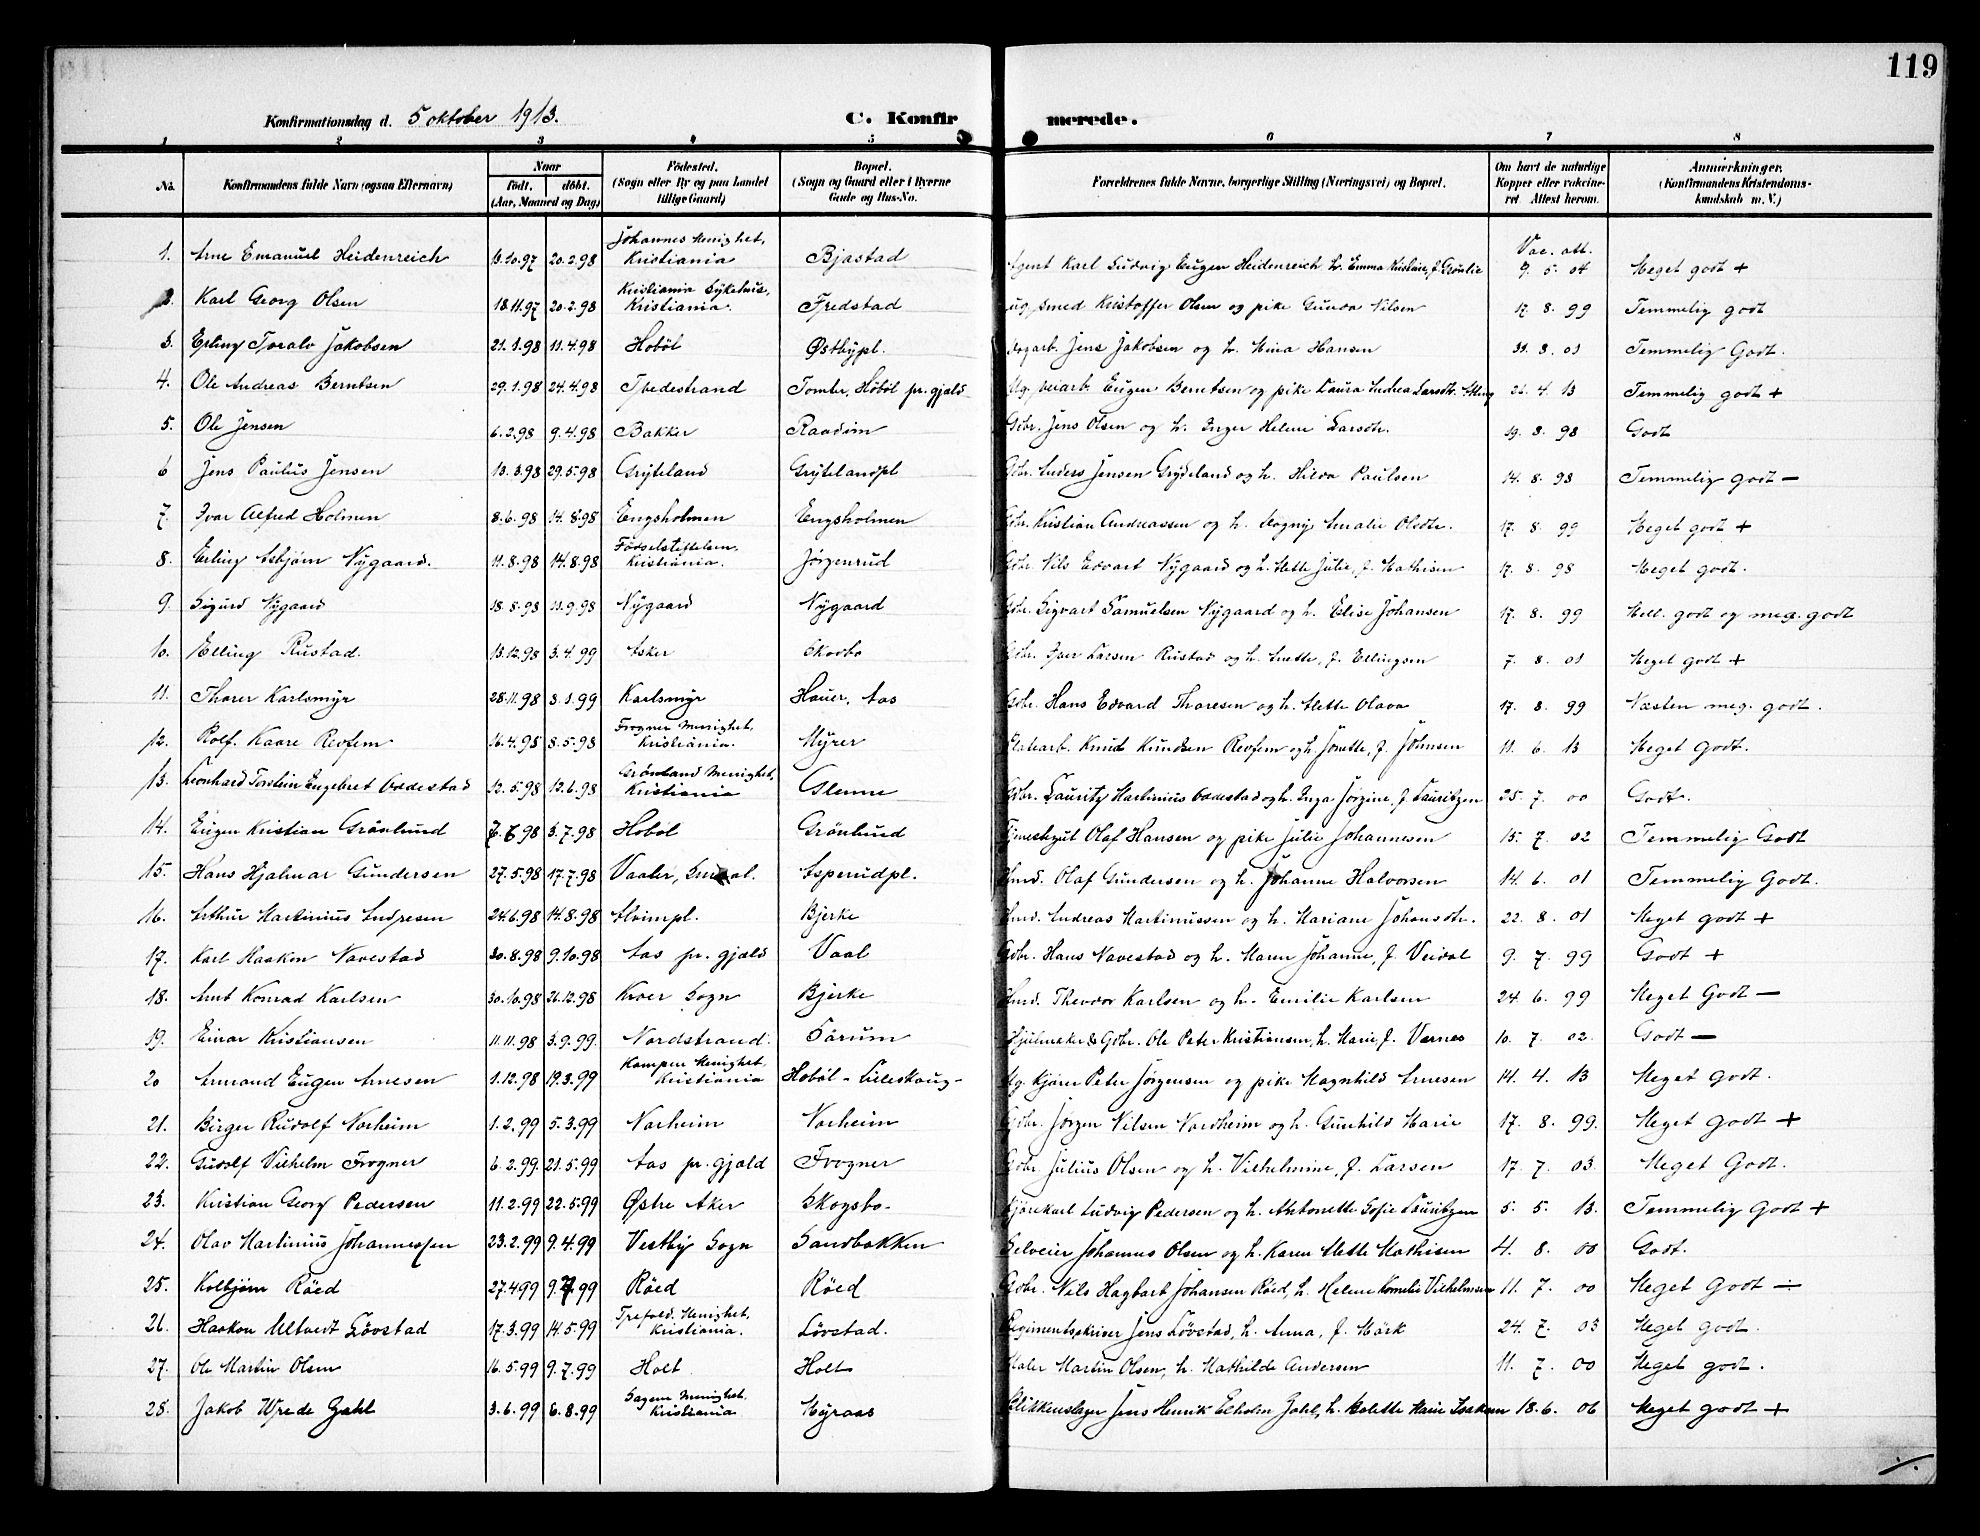 119
Konfirmationsdag d. 5 oktober 1913.
C. Konfirmerede.
1 2 3 4 5 6 7 8
No. Konfirmandens fulde Navn (ogsaa Efternavn) Naar født. døbt. (Aar, Maaned og Dag) Fødested. (Sogn eller By og paa Landet tillige Gaard) Bopæl. (Sogn og Gaard eller i Byerne Gade og Hus-No. Forældrenes fulde Navne, borgerlige Stilling (Næringsvei) og Bopæl. Om havt de naturlige Kopper eller vakcineret. Attest herom. Anmærkninger. (Konfirmandens Kristendomskundskab m. V.)
1. Arne Emanuel Heidenreich 13.10.97 20.2.98 Johannes Menighet, Kristiania Bjastad Agent Karl Ludvig Eugen Heidenreich h. Emma Kristine, f. Grønlie Vac. att. 9. 5. 04 Meget godt +
2. Karl Georg Olsen 18.11.97 20.2.98 Kristiania Sykehus, Kristiania. Fredstad ug. smed Kristoffer Olsen og pike Gunda Nilsen 17. 8. 99 Temmelig godt
3. Erling Toralv Jakobsen 21.1.98 11.4.98 Hobøl Østbypl. Jens Jakobsen og h. Mina Hansen 31. 8. 01 Temmelig Godt.
4. Ole Andreas Berntsen 29.1.98 24.4.98 Tvedestrand Tomter, Hobøl pr. gjæld Ug. veiarb. Eugen Berntsen og pike Laura Andrea Larsdtr. 26. 4. 13 Temmelig godt +
5. Ole Jensen 6.2.98 9.4.98 Bakker Raadim Gdbr. Jens Olsen og h. Inger Helene Larsdtr. 19. 8. 98 Godt
6 Jens Paulus Jensen 13.3.98 29.5.98 Gryteland Grytelandpl Gdbr. Anders Jensen Grydeland og h. Hilda Paulsen 14. 8. 98 Temmelig godt —
7. Ivar Alfred Holmen 8.6.98 14.8.98 Engsholmen Engsholmen Gdbr. Kristian Andreassen og h. Magny Amalie Olsdtr. 17. 8. 99 Meget godt +
8. Erling Asbjørn Nygaard. 11.8.98 14.8.98 Fødselstiftelsen, Kristiania. Jørgenrud Gdbr. Nils Edvart Nygaard og h. Mette Julie, f. Mathisen 17. 8. 98 Meget godt.
9. Sigurd Nygaard 18.8.98 11.9.98 Nygaard Nygaard Gdbr. Sigvart Samuelsen Nygaard og h. Elise Johansen 17. 8. 99 Mell. godt og meg. godt
10. Elling Rustad. 13.12.98 3.4.99 Asker Skodbo Gdbr. Iver Larsen Rustad og h. Anette, f. Ellingsen 7. 8. 01 Meget godt +
11. Thorer Karlsmyr 28.11.98 8.1.99 Karlsmyr Hauer, Aas Gdbr. Hans Edvard Thoresen og h. Mette Olava 17. 8. 99 Næsten meg. godt.
12. Rolf Kaare Revfem 16.4.98 8.5.98 Frogner Menighet, Kristiania. Myrer Knud Knudsen Revfem og h. Jonette, f. Johnsen 11. 6. 13 Meget Godt.
13. Leonhard Torstein Engebret Ordestad 12.5.98 12.6.98 Grønland Menighet, Kristiania Glenne Gdbr. Lauritz Martinius Ordestad og h. Inga Jørgine, f. Lauritzen 25. 7. 00 Godt.
14. Eugen Kristian Grønlund 7.6.98 3.7.98 Hobøl Grønlund Tjenestegut Olaf Hansen og pike Julie Johannesen 15. 7. 02 Temmelig Godt
15. Hans Hjalmar Gundersen 27.5.98 17.7.98 Vaaler, Asperudpl. Hmd. Olaf Gundersen og h. Johanne Halvorsen 14. 6. 01 Temmelig Godt.
16. Arthur Martinius Andresen 24.6.98 14.8.98 Alvimpl. Bjerke Hmd. Andreas Martinussen og h. Mariane Johansdtr. 22. 8. 01 Meget godt +
17. Karl Haakon Navestad 30.8.98 9.10.98 Aas pr. gjæld Vaal Gdbr. Hans Navestad og h. Maren Johanne, f. Veidal 9. 7. 99 Godt +
18. Arnt Konrad Karlsen 30.10.98 26.12.98 Kroer Sogn Bjerke Hmd. Theodor Karlsen og h. Emilie Karlsen 24. 6. 99 Meget Godt —
19. Einar Kristiansen 11.11.98 3.9.99. Nordstrand. Sørum Hjulmaker & Gdbr. Ole Peter Kristiansen, h. Marie, f. Varnes 10. 7. 02. Godt —
20 Armand Eugen Arnesen 1.12.98 19.3.99 Kampen Menighet, Kristiania Hobøl - Lilleskaug - Ug. kjører Peter Jørgensen og pike Magnhild Arnesen 14. 4. 13 Meget Godt.
21. Birger Rudolf Norheim 1.2.99 5.3.99 Norheim Norheim Gdbr. Jørgen Nilsen Nordheim og h. Gunhild Marie 17. 8. 99. Meget Godt +
22. Gudolf Vilhelm Frogner 6.2.99. 21.5.99 Aas pr. gjæld Frogner Gdbr. Julius Olsen og h. Vilhelmine, f. Larsen 17. 7. 03. Meget Godt.
23. Kristian Georg Pedersen 11.2.99 22.5.99 Østre Aker Skogsbo- Kjørekarl Ludvig Pedersen og h. Antonette Sofie Lauritzen 5. 5. 13. Temmelig Godt +
24. Olav Martinius Johannessen 23.2.99 9.4.99 Vestby Sogn Sandbakken Selveier Johannes Olsen og h. Karen Mette Mathisen 4. 8. 00 Godt.
25. Kolbjørn Røed 27.4.99 9.7.99 Røed Røed Gdbr. Nils Hagbart Johansen Røed, h. Helene Kornelie Vilhelmsen 11. 7. 00 Meget Godt —
26. Haakon Løvstad 17.3.99 14.5.99 Trefold. Menighet, Kristiania. Løvstad. Regimentsskriver Jens Løvstad, h. Anna, f. Mørk 24. 7. 03 Meget godt.
27. Ole Martin Olsen 16.5.99 9.7.99 Holt Holt Maler Martin Olsen, h. Mathilde Andersen 11. 7. 00 Meget godt.
28. Jakob Wrede Zahl 3.6.99 6.8.99 Sagene Menighet, Kristiania Myraas Blikkenslager Jens Henrik Zahl, h. Marie Isaksen 18. 6. 06 Meget godt +